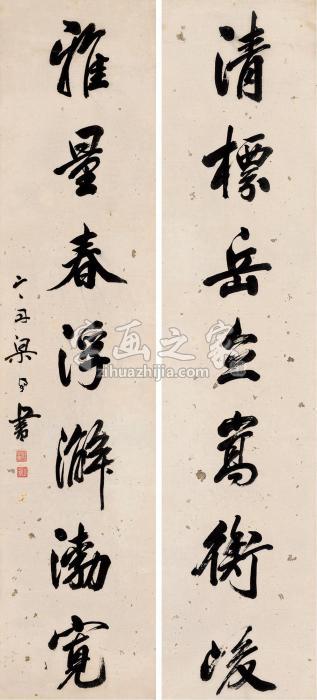 清標岳立嵩衡峻
雅量春浮澥渤寬
山舟梁同書
字画之家
zihuazhijia.com